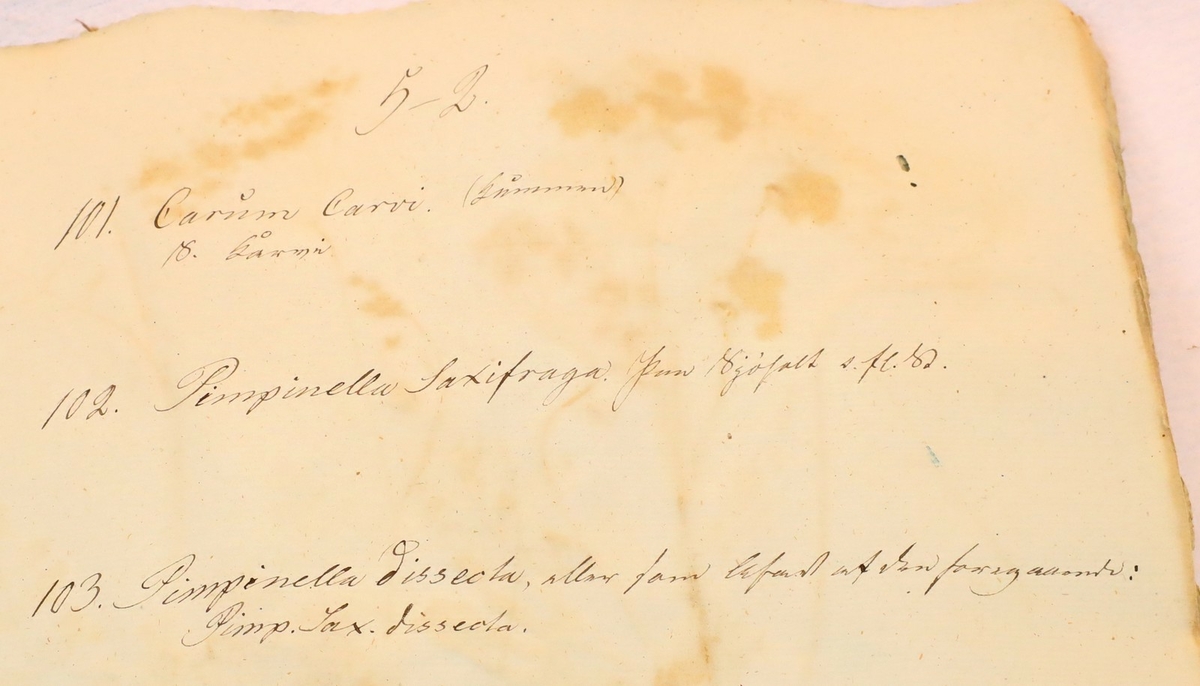 5-2.
101. Carum Carvi. (Kummen)
S. Karvi
102. Pimpinella Saxifraga. paa Sjøholt s. fl. St.
103. Pimpinella dissecta, eller som Afart af den foregaaende:
Pimp. Sax. dissecta.